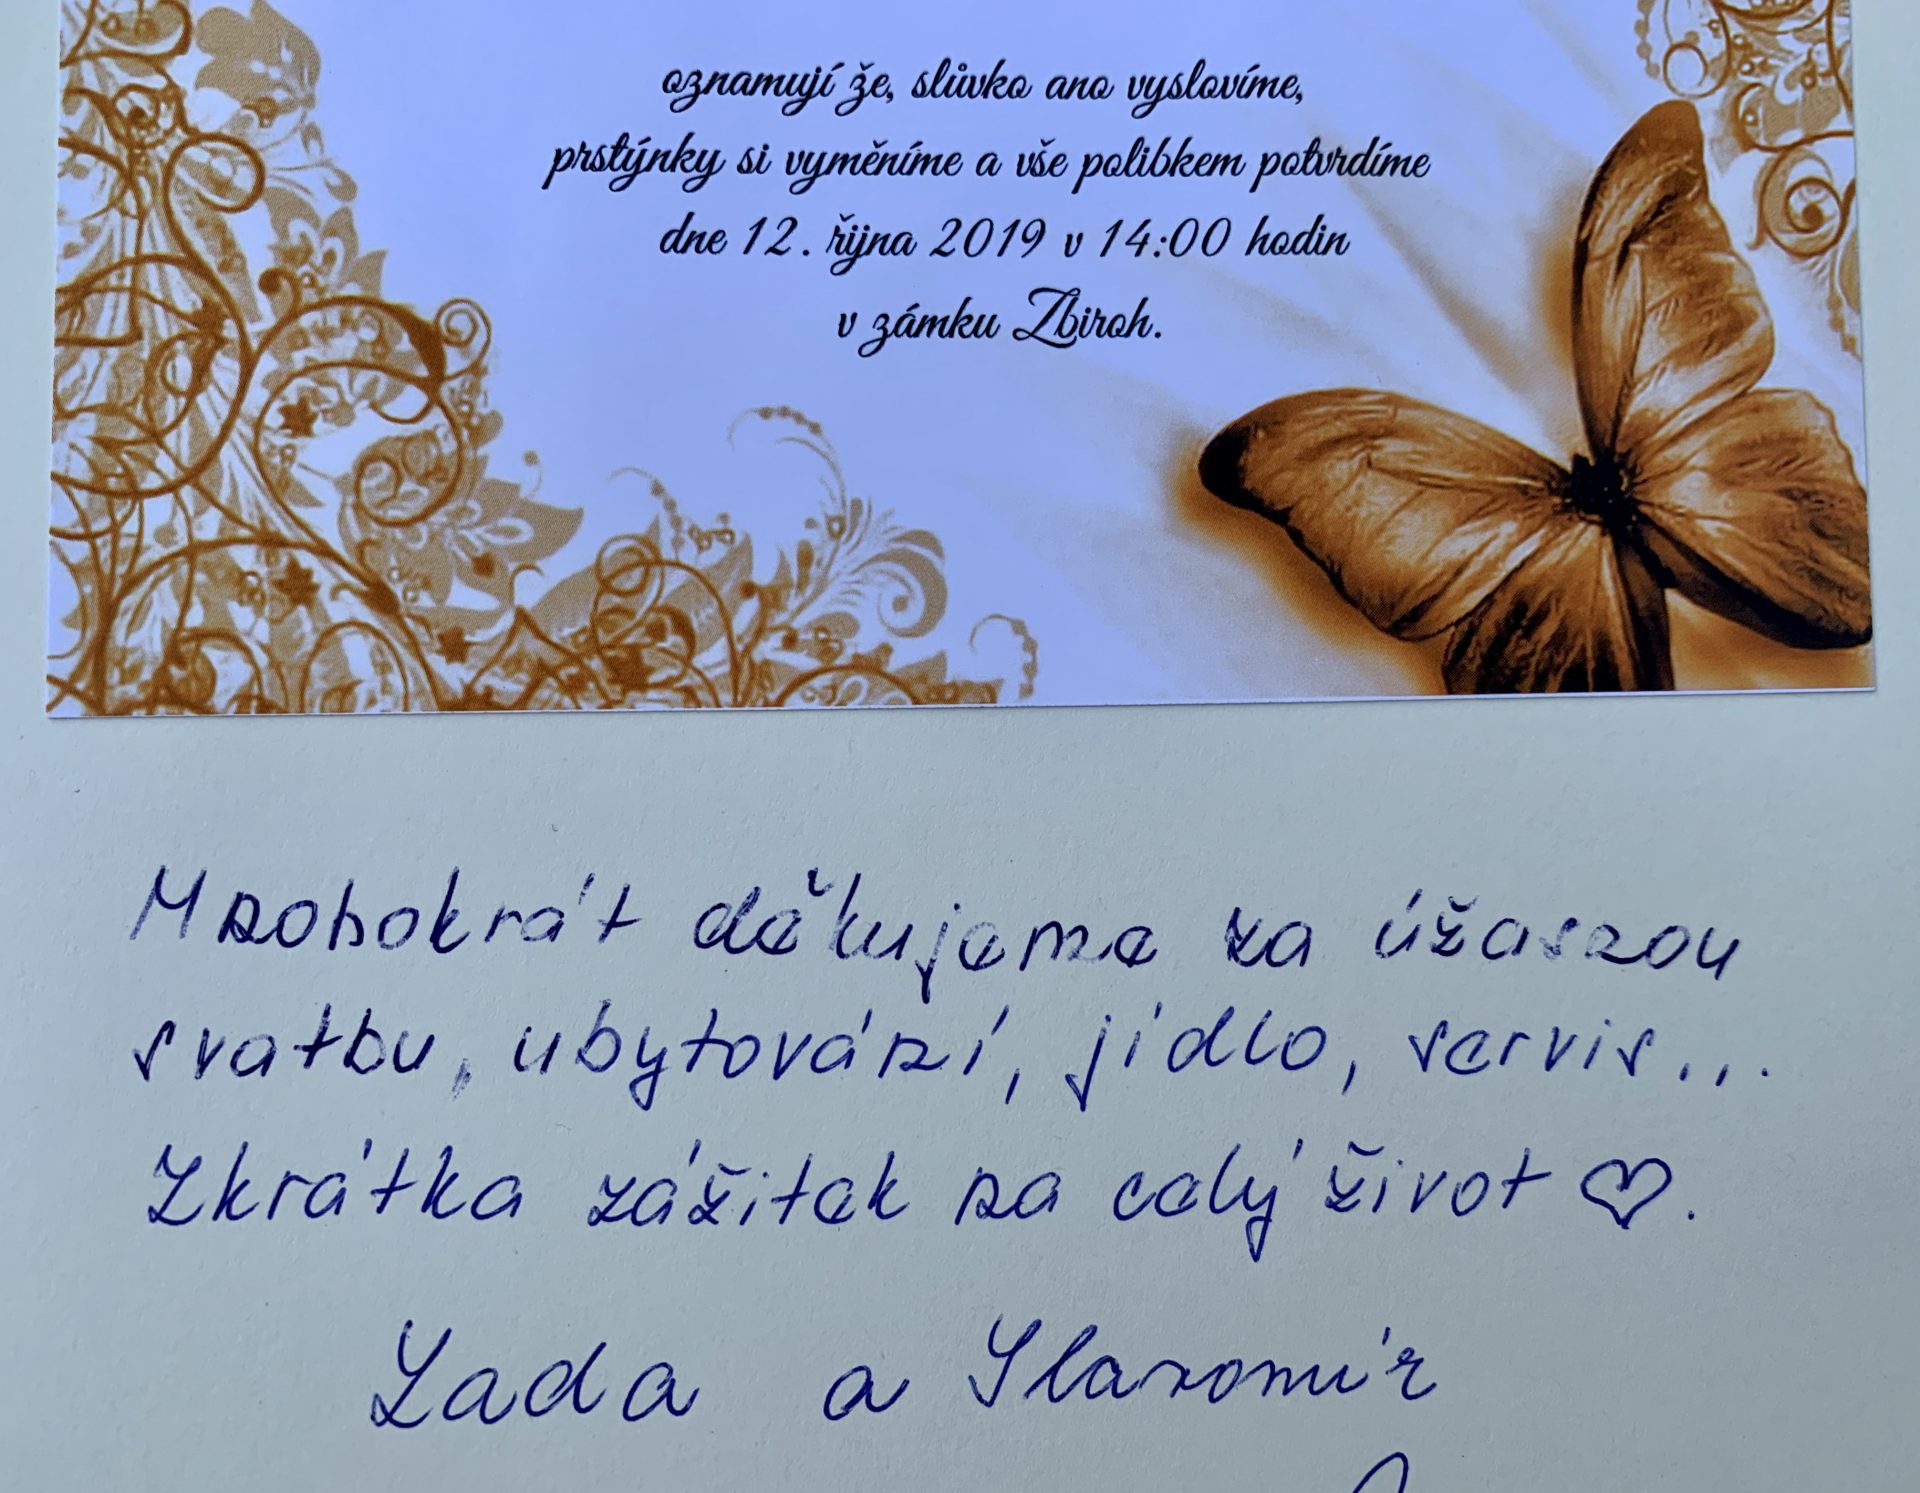 oznamují že, slůvko ano vyslovíme,
prstýnky si vyměníme a vše polibkem potvrdíme
dne 12. října 2019 v 14:00 hodin
v zámku Zbiroh.
Mnohokrát děkujeme za úžasnou
svatbu, ubytování, jídlo, servis...
Zkrátka zážitek na celý život ♡.
Lada a Slavomír